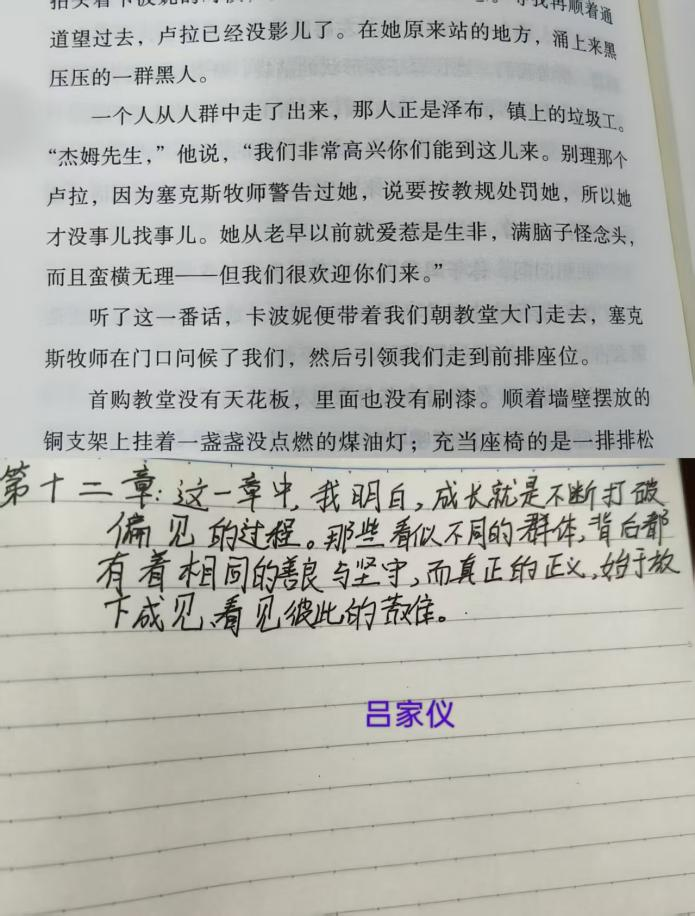 道望过去，卢拉已经没影儿了。在她原来站的地方，涌上来黑
压压的一群黑人。
一个人从人群中走了出来，那人正是泽布，镇上的垃圾工。
“杰姆先生，”他说，“我们非常高兴你们能到这儿来。别理那个
卢拉，因为塞克斯牧师警告过她，说要按教规处罚她，所以她
才没事儿找事儿。她从老早以前就爱惹是生非，满脑子怪念头，
而且蛮横无理——但我们很欢迎你们来。”
听了这一番话，卡波妮便带着我们朝教堂大门走去，塞克
斯牧师在门口问候了我们，然后引领我们走到前排座位。
首购教堂没有天花板，里面也没有刷漆。顺着墙壁摆放的
铜支架上挂着一盏盏没点燃的煤油灯；充当座椅的是一排排松
第十二章：这一章中，我明白，成长就是不断打破
偏见的过程。那些看似不同的群体，背后都
有着相同的善良与坚守，而真正的正义，始于放
下成见、看见彼此的苦难。
吕家仪